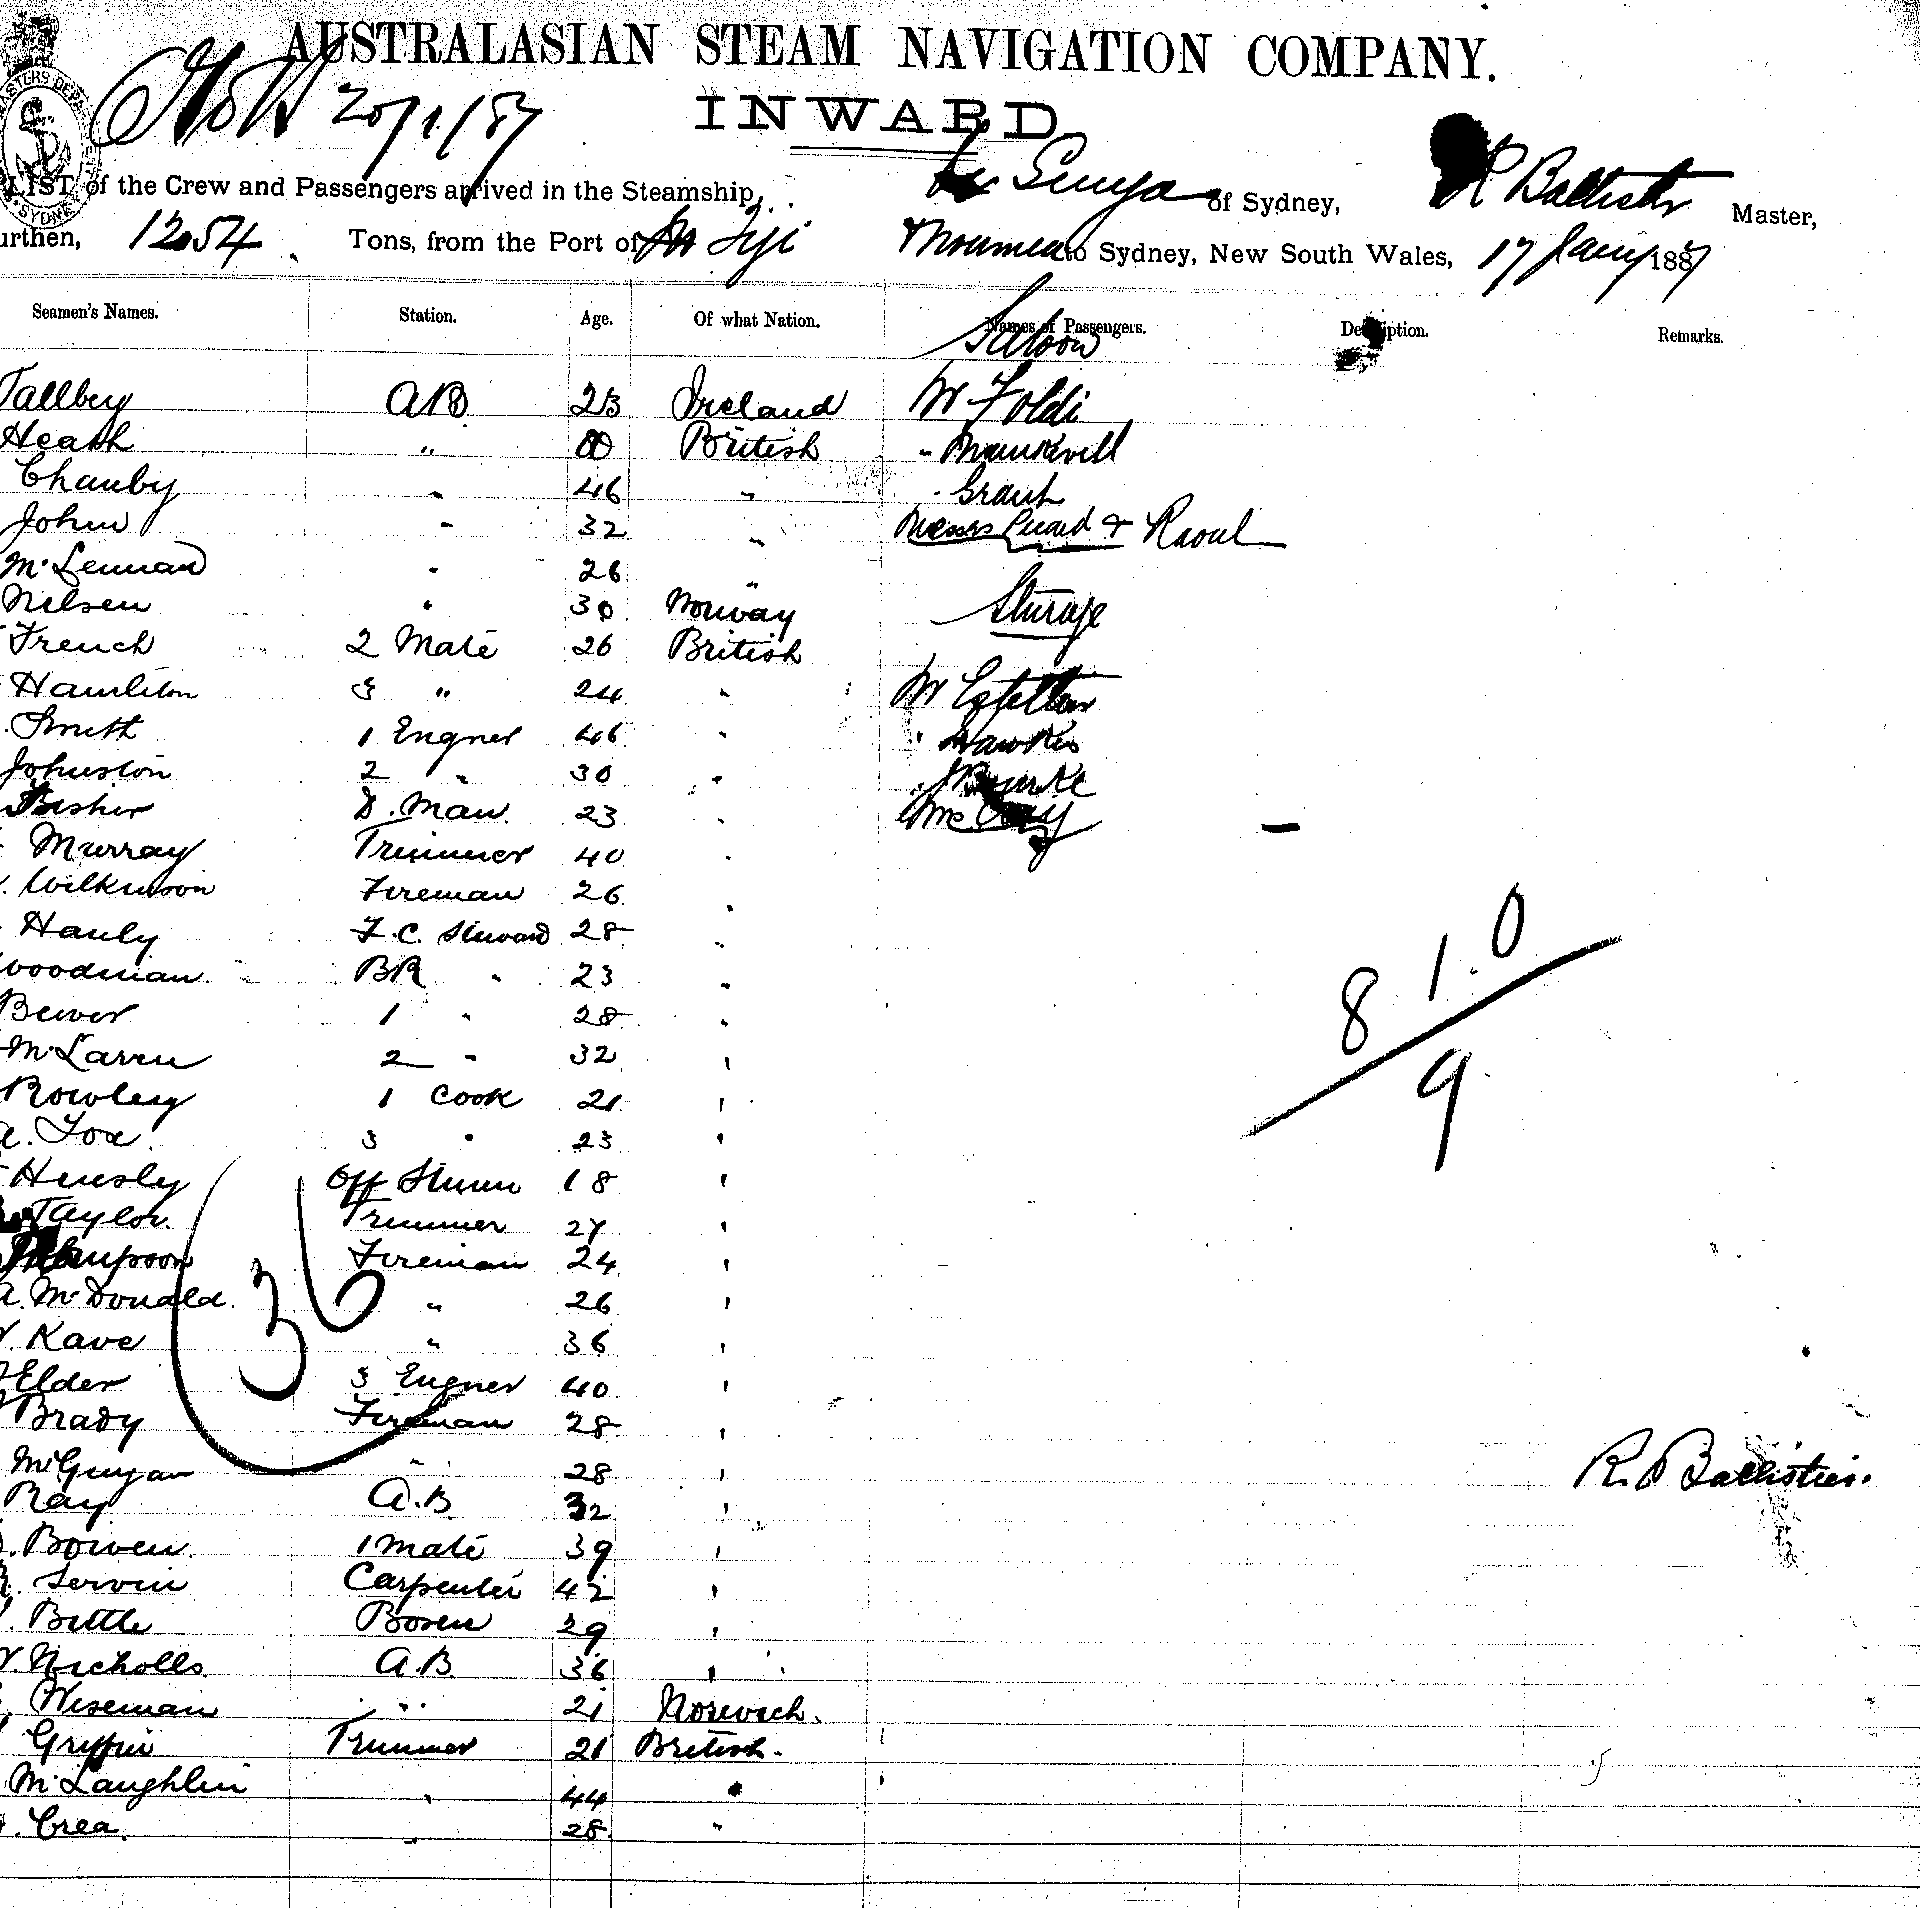 AUSTRALASIAN STEAM NAVIGATION COMPANY.
20/1/87
INWARD
LIST of the Crew and Passengers arrived in the Steamship, Gunga of Sydney, R Ballister Master,
urthen, 1254 Tons, from the Port of Fiji & Noumea to Sydney, New South Wales, 17 Jany 1887
Seamen's Names. Station. Age. Of what Nation. Names of Passengers. Description. Remarks.
Saloon
Tallbey AB 23 Ireland Mr Foldi
Heath " British "
Chanby " 46 " " Grant
John " 32 " Messrs & Raoul
McLennan " 26 "
Nelsen " 30 Norway Sturage
French 2 Mate 26 British
Hamilton 3 " 24 " Mr
Smith 1 Engner 46 " " Hawkes
Johnston 2 " 30 "
Fisher D. Man 23 "
Murray Trimmer 40 "
Wilkinson Fireman 26 "
Hanly F.C. Steward 28 "
Woodman BR " 23 "
Bewer 1 " 28 "
McLaren 2 " 32 "
Rowley 1 Cook 21 "
a. Fox 3 " 23 "
Hensly Off 18 "
Taylor Trimmer 27 "
Fireman 24 "
a. McDonald " 26 "
Kave " 36 "
Elder 3 Engner 40 "
Brady Fireman 28 "
McGuigan " 28 "
Ray A.B 32 "
Bowen 1 Mate 39 "
Servin Carpenter 42 "
Buttle Bosen 29 "
Nicholls A.B 36 "
Wiseman " 21
Griffin Trimmer 21 British.
McLaughlin " 44 "
Crea " 28 "
36
8 1.0
9
R. D Ballister.